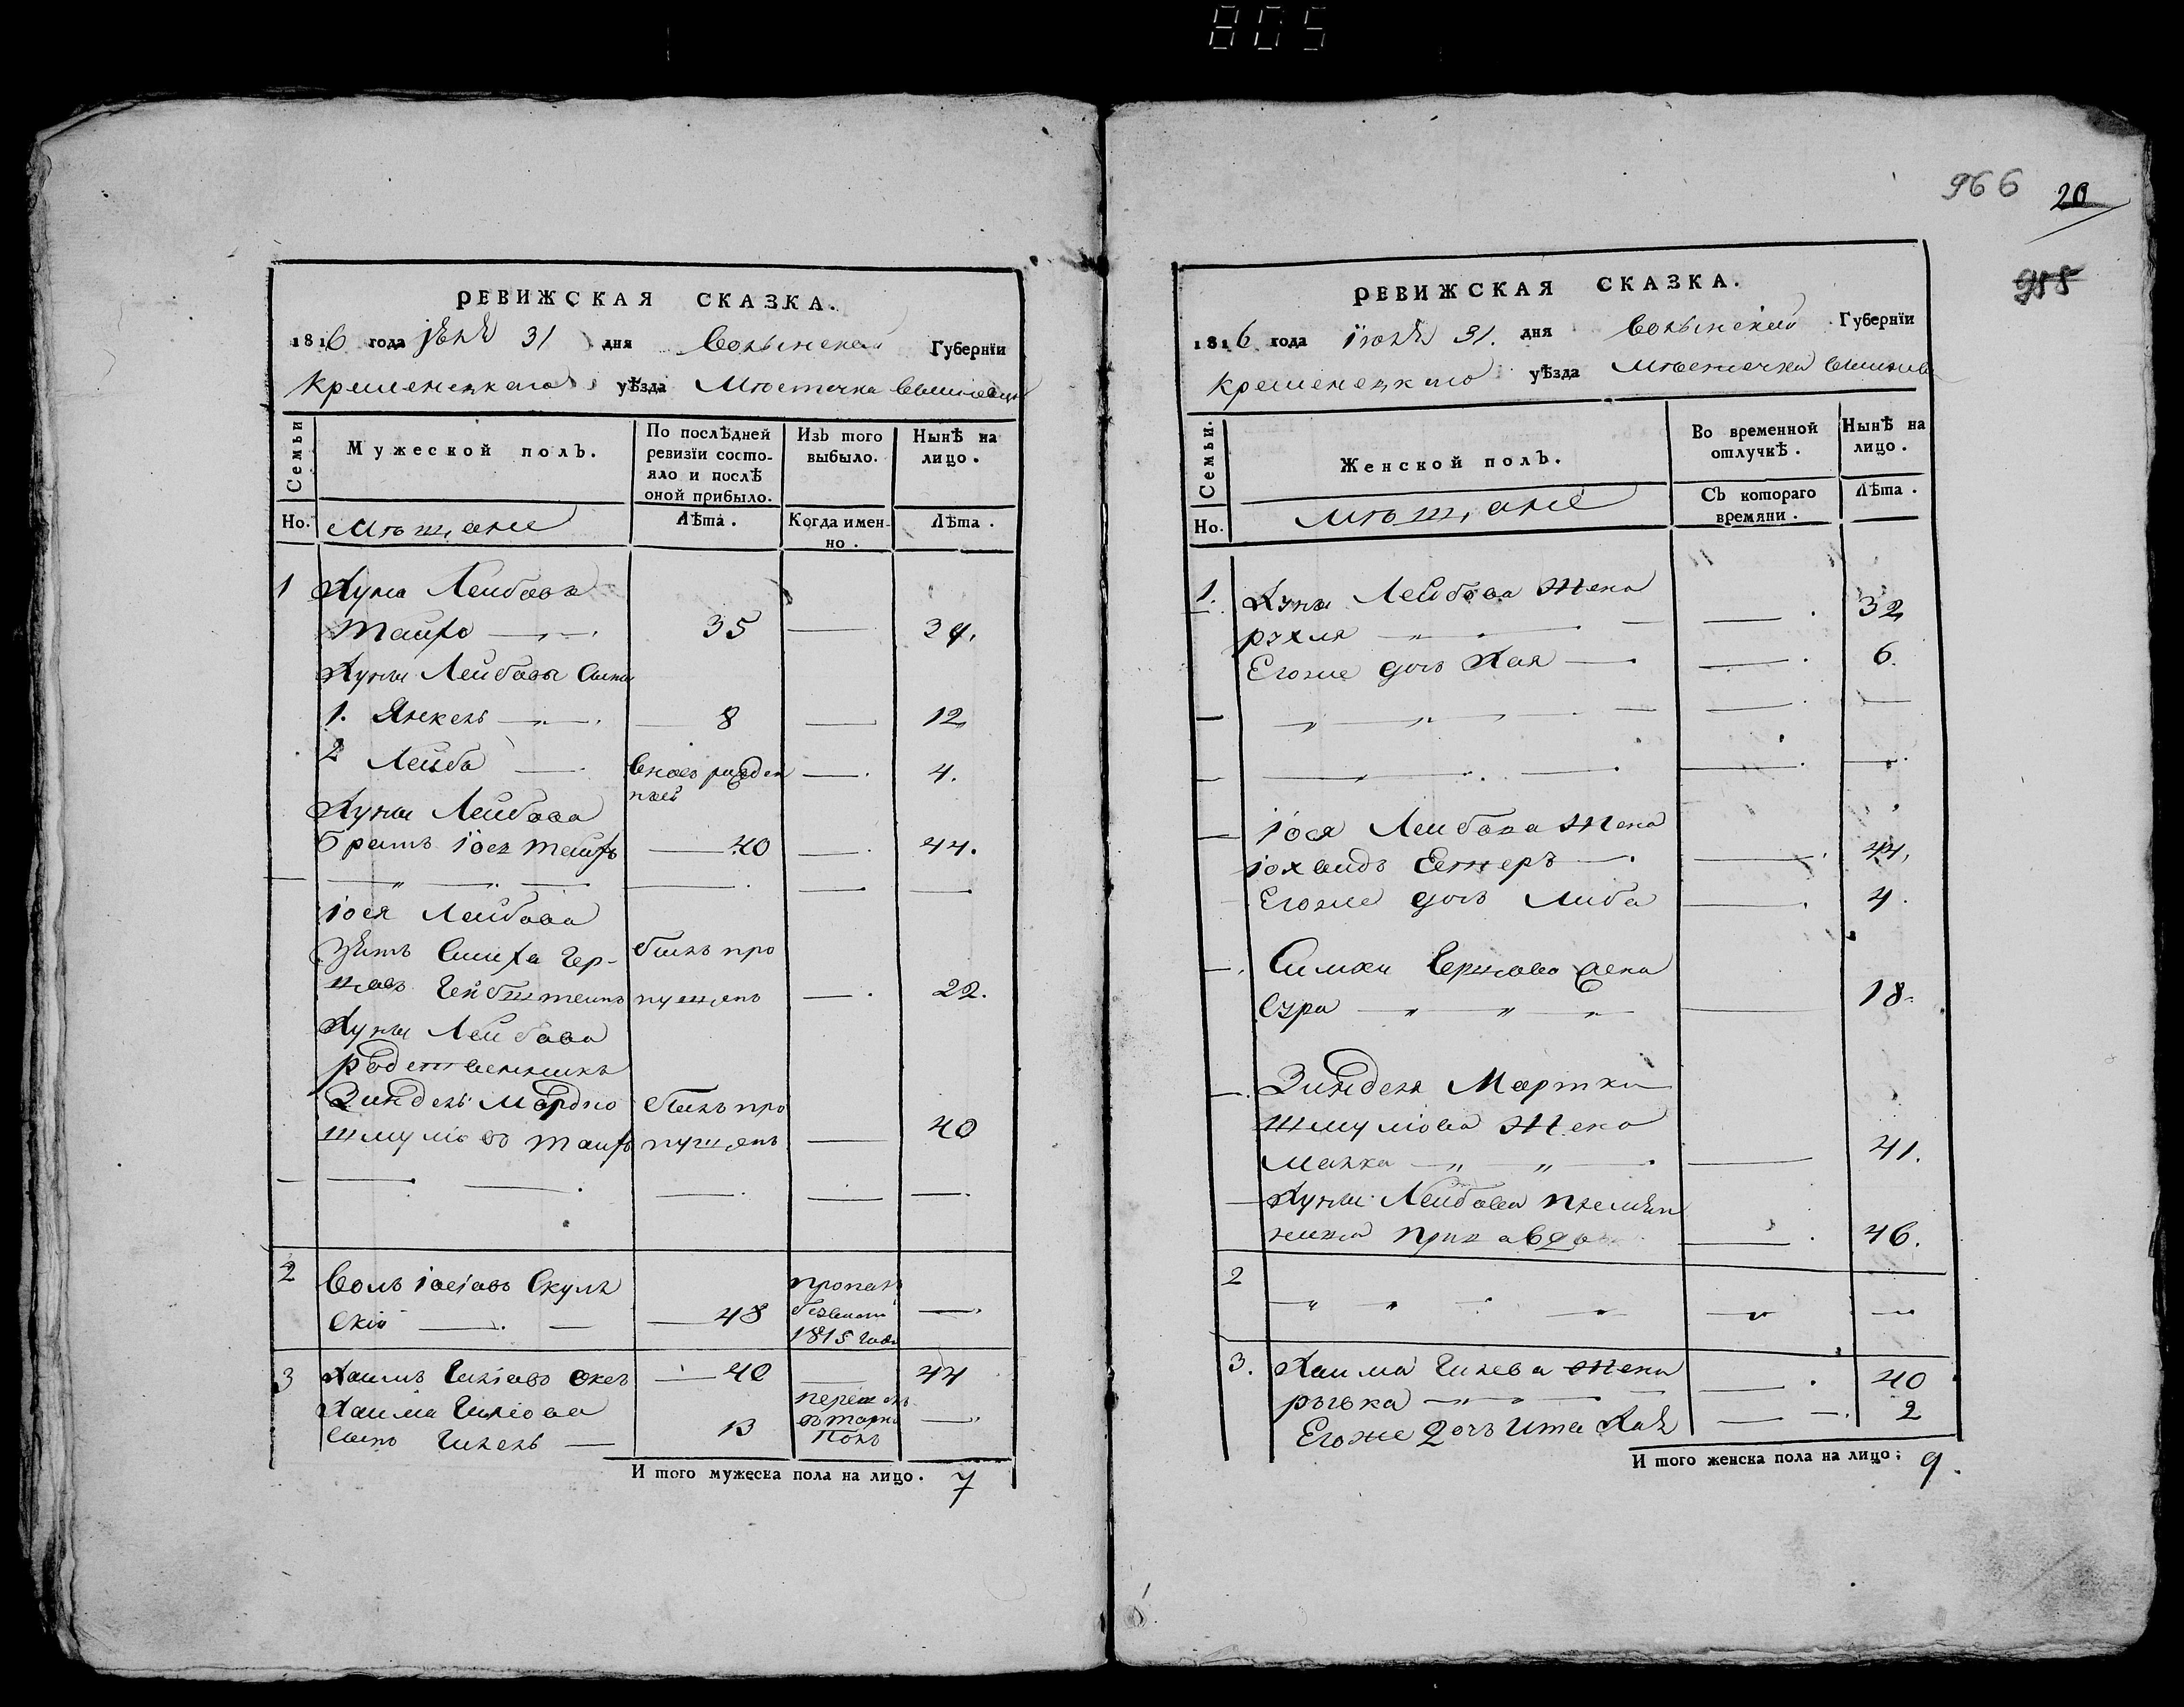 805
966 20
955
РЕВИЖСКАЯ СКАЗКА.
1816 года 31 дня Волынской Губернїи
Кременецкаго уѣзда Мѣстечка Вишневца
Семьи
Мужеской полЪ.
По послѣдней ревизїи состо-
яло и послѣ
оной прибыло.
ИзЬ того выбыло.
Нынѣ на лицо.
Но. мѣщане
Лѣта.
Когда имен-
но.
Лѣта.
1 Хуна Лейбовъ
Таих 35 34.
Хуны Лейбовы Сыны
1. Янкель 8 12
2 Лейба 4.
Хуны Лейбова
братъ іось Таихъ 40 44.
іося Лейбова
Зять Симха Гер-
шовъ былъ про
пущенъ 22.
Хуны Лейбова
родственникъ
Зиндель Мордко былъ про
Шмуліовъ Таихъ пущенъ 40
2 Воль іосіовъ Скуль
скій 48 пропалъ
безвести
1815 года
3 Хаимъ Гилiовъ 40 44
Хаима Гилiова
сынъ Гилель 13
И того мужеска пола на лицо. 7
РЕВИЖСКАЯ СКАЗКА.
1816 года іюля 31. дня Волынской Губернїи
Кременецкаго уѣзда Мѣстечка Вишнев
Семьи.
Женской полЪ.
Во временной
отлучкѣ.
Нынѣ на
лицо.
Но. мѣщане
СЬ котораго
времяни.
Лѣта.
1. Хуны Лейбова Жена
рухля 32
Егоже дочь Хая 6.
іося Лейбова Жена
іохвидъ Естеръ 44.
Егоже дочь Либа 4.
Симхи Гершова жена
Сура 18.
Зинделя Мортки
Шмуліова Жена
Малка 41.
Хуны Лейбова племян
ница 46.
2
3. Хаима Гилева Жена
рывка 40
Егоже дочь Ита Хая 2
И того женска пола на лицо; 9.